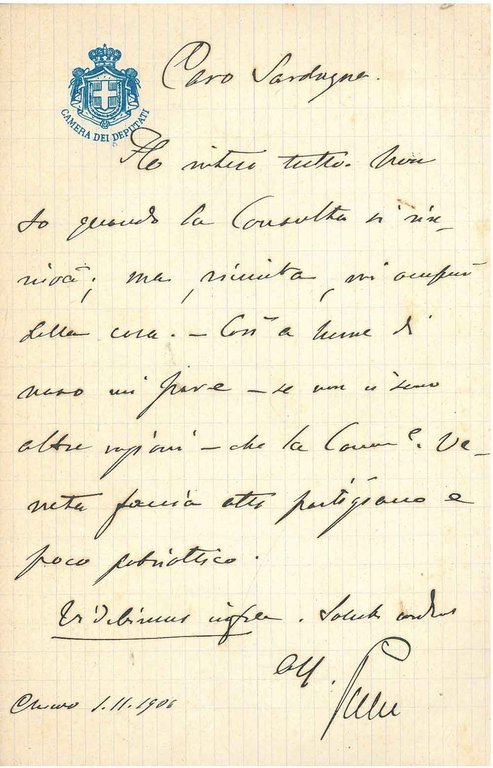 CAMERA DEI DEPUTATI
Caro Sardagna.
Ho inteso tutto. Non
so quando la Consulta si riu-
nirà; ma, riunita, mi occuperò
della cosa. – Così a lume di
naso mi pare – se non ci sono
altre ragioni – che la Comm.e Ve-
neta faccia atto partigiano e
poco patriottico.
Saluti cordiali
Aff.
1.11.1906